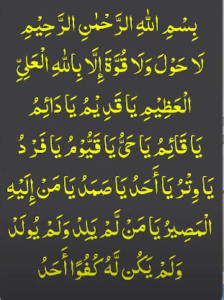 بِسْمِ اللهِ الرَّحْمٰنِ الرَّحِيْمِ
لَا حَوْلَ وَلَا قُوَّةَ إِلَّا بِاللهِ الْعَلِيِّ
الْعَظِيْمِ يَا قَدِيْمُ يَا دَائِمُ
يَا قَائِمُ يَا حَيُّ يَا قَيُّوْمُ يَا فَرْدُ
يَا وِتْرُ يَا أَحَدُ يَا صَمَدُ يَا مَنْ إِلَيْهِ
الْمَصِيْرُ يَا مَنْ لَّمْ يَلِدْ وَلَمْ يُولَدْ
وَلَمْ يَكُنْ لَّهُ كُفُوًا أَحَدُ